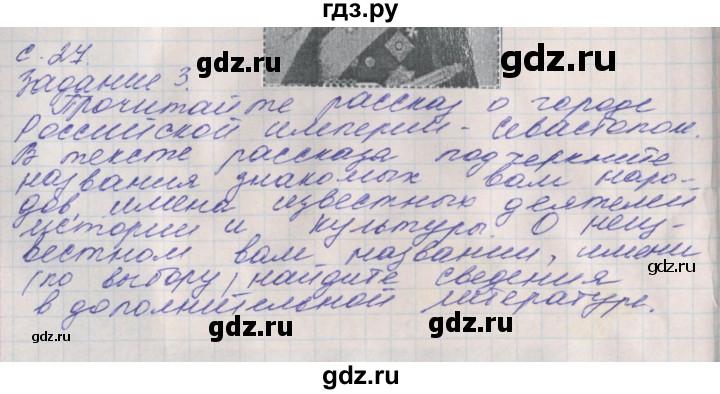 гдз.ру
с. 27.
Задание 3.
Прочитайте рассказ о городе
Российской империи - Севастополь.
В тексте рассказа подчеркните
названия знакомых вам наро-
дов, имена известных деятелей
истории и культуры. О неиз-
вестном вам названии, имени
(по выбору) найдите сведения
в дополнительной литературе.
gdz.ru
gdz.ru
gdz.ru
gdz.ru
gdz.ru
gdz.ru
gdz.ru
gdz.ru
gdz.ru
gdz.ru
gdz.ru
gdz.ru